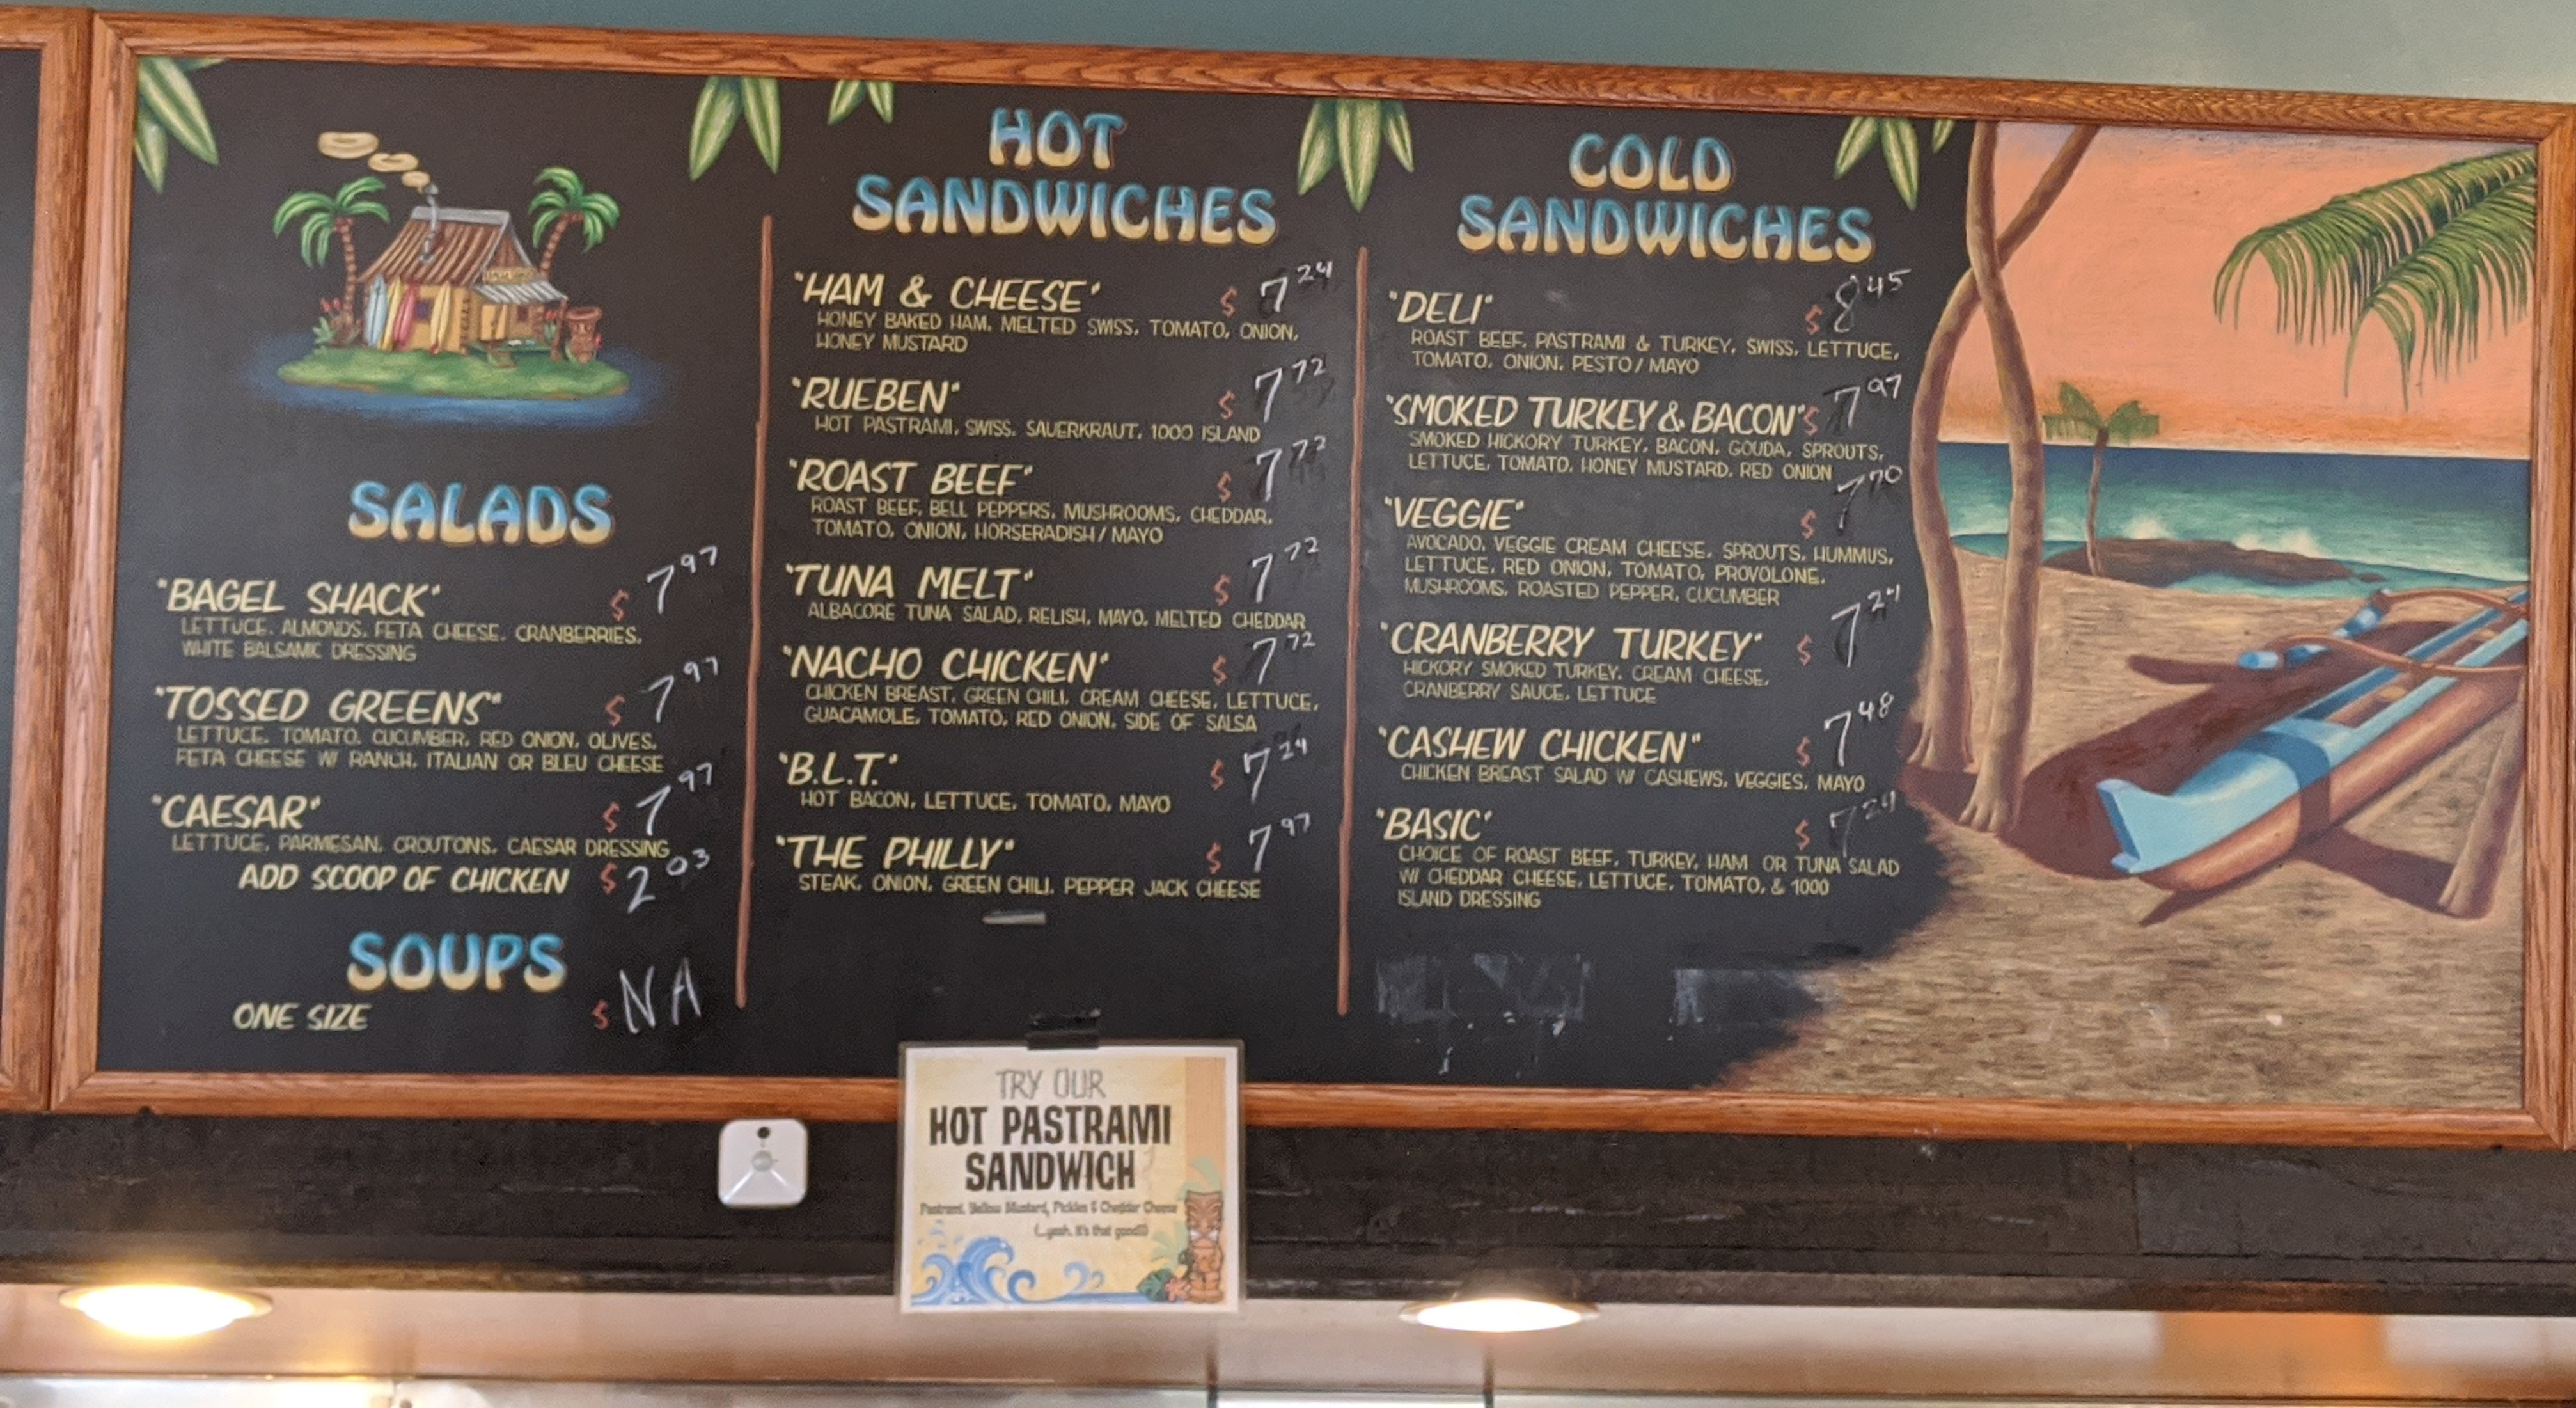 SALADS
"BAGEL SHACK" $ 7 97
LETTUCE, ALMONDS, FETA CHEESE, CRANBERRIES,
WHITE BALSAMIC DRESSING
"TOSSED GREENS" $ 7 97
LETTUCE, TOMATO, CUCUMBER, RED ONION, OLIVES,
FETA CHEESE W/ RANCH, ITALIAN OR BLEU CHEESE
"CAESAR" $ 7 97
LETTUCE, PARMESAN, CROUTONS, CAESAR DRESSING
ADD SCOOP OF CHICKEN $ 2 03
SOUPS
ONE SIZE $ NA
HOT
SANDWICHES
"HAM & CHEESE" $ 7 24
HONEY BAKED HAM, MELTED SWISS, TOMATO, ONION,
HONEY MUSTARD
"RUEBEN" $ 7 72
HOT PASTRAMI, SWISS, SAUERKRAUT, 1000 ISLAND
"ROAST BEEF" $ 7 72
ROAST BEEF, BELL PEPPERS, MUSHROOMS, CHEDDAR,
TOMATO, ONION, HORSERADISH / MAYO
"TUNA MELT" $ 7 72
ALBACORE TUNA SALAD, RELISH, MAYO, MELTED CHEDDAR
"NACHO CHICKEN" $ 7 72
CHICKEN BREAST, GREEN CHILI, CREAM CHEESE, LETTUCE,
GUACAMOLE, TOMATO, RED ONION, SIDE OF SALSA
"B.L.T." $ 7 24
HOT BACON, LETTUCE, TOMATO, MAYO
"THE PHILLY" $ 7 97
STEAK, ONION, GREEN CHILI, PEPPER JACK CHEESE
COLD
SANDWICHES
"DELI" $ 8 45
ROAST BEEF, PASTRAMI & TURKEY, SWISS, LETTUCE,
TOMATO, ONION, PESTO / MAYO
"SMOKED TURKEY & BACON" $ 7 97
SMOKED HICKORY TURKEY, BACON, GOUDA, SPROUTS,
LETTUCE, TOMATO, HONEY MUSTARD, RED ONION
"VEGGIE" $ 7 70
AVOCADO, VEGGIE CREAM CHEESE, SPROUTS, HUMMUS,
LETTUCE, RED ONION, TOMATO, PROVOLONE,
MUSHROOMS, ROASTED PEPPER, CUCUMBER
"CRANBERRY TURKEY" $ 7 24
HICKORY SMOKED TURKEY, CREAM CHEESE,
CRANBERRY SAUCE, LETTUCE
"CASHEW CHICKEN" $ 7 48
CHICKEN BREAST SALAD W/ CASHEWS, VEGGIES, MAYO
"BASIC" $ 7 24
CHOICE OF ROAST BEEF, TURKEY, HAM OR TUNA SALAD
W/ CHEDDAR CHEESE, LETTUCE, TOMATO, & 1000
ISLAND DRESSING
TRY OUR
HOT PASTRAMI
SANDWICH
Pastrami, Yellow Mustard, Pickles & Cheddar Cheese
(...yeah, it's that good!)